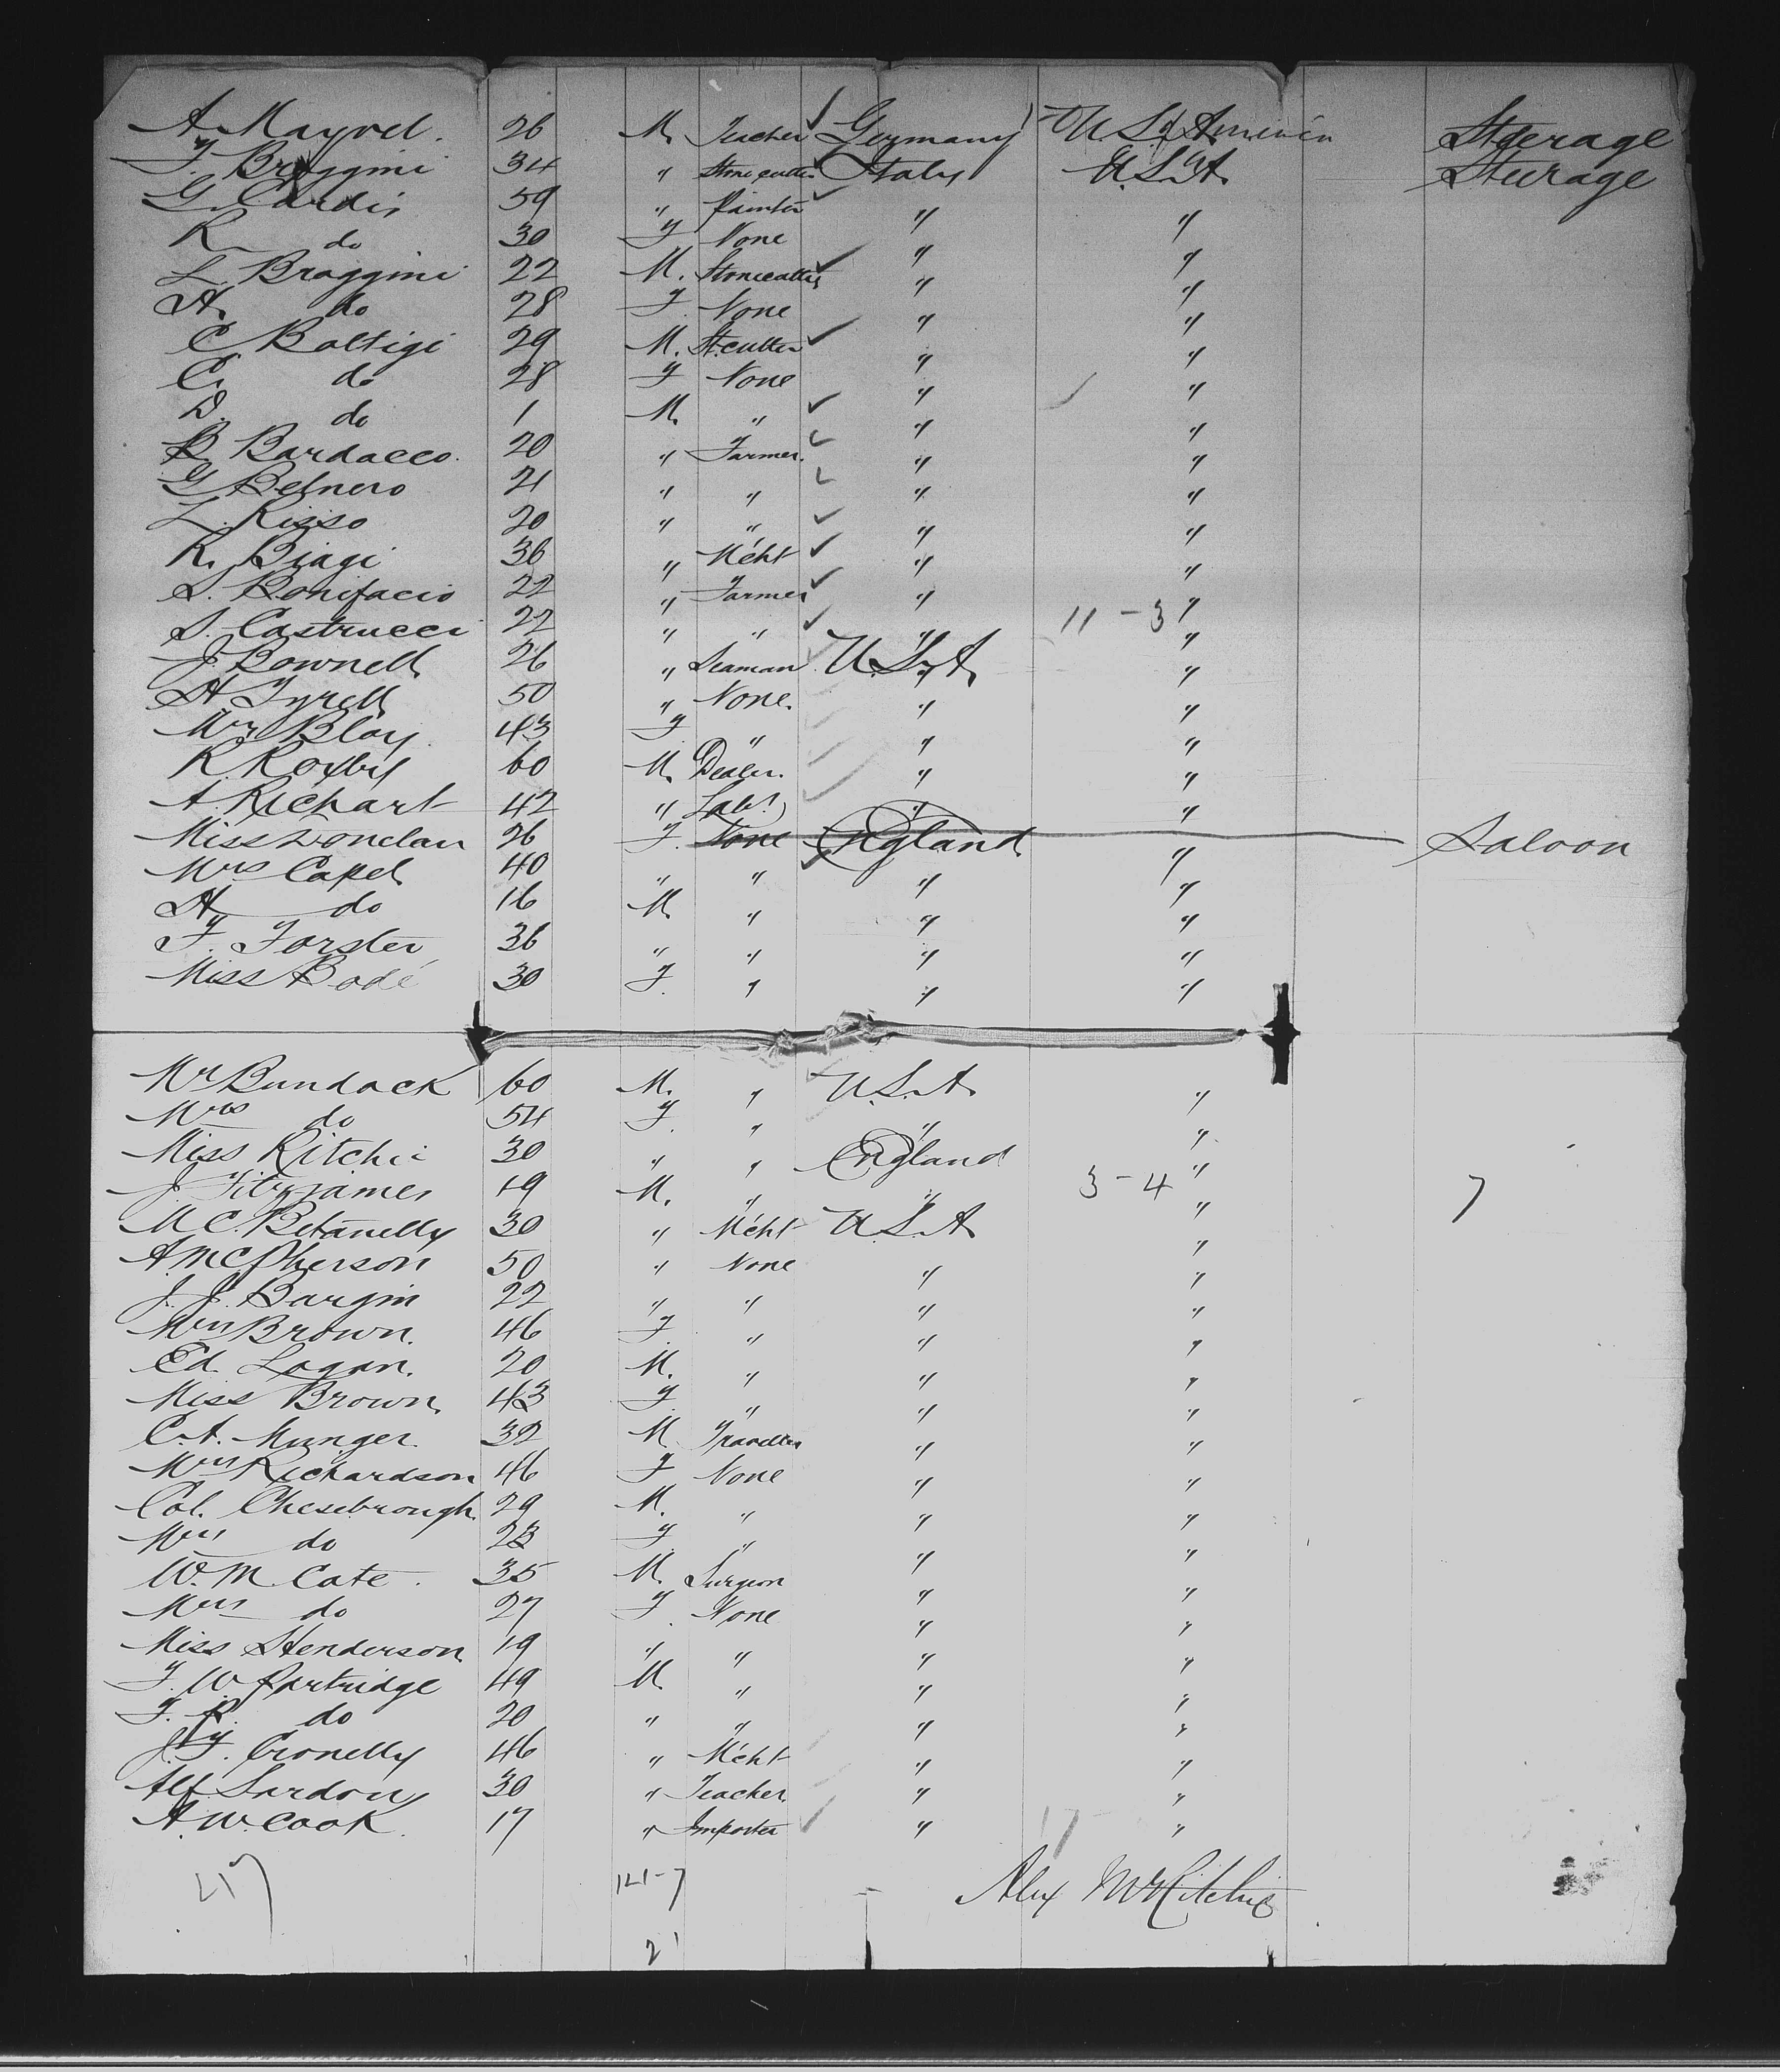 A. Mayrel. 26 M. Teacher Germany U.S. of America Steerage
F. Braggini 34 " Stonecutter Italy U.S.A. Steerage
G. Cardis 59 " Painter " "
R. do 30 F None " "
L. Braggini 22 M. Stonecutter " "
A. do 28 F. None " "
C Baltigi 29 M. St.cutter " "
C. do 28 F None " "
D. do 1 M. " " "
B Bardacco. 20 " Farmer. " "
G Belnero 21 " " " "
L. Risso 20 " " " "
R. Biagi 36 " Mcht " "
S. Bonifacio 22 " Farmer " "
S. Castrucci 22 " " " 11 - 3 "
J. Bownell 26 " Seaman U.S.A "
H Tyrell 50 " None. " "
Mrs Blay 43 F " " "
R. Roxby 60 M. Dealer. " "
A. Richart 42 " Labr " "
Miss Donclan 26 F. None England " Saloon
Mrs Capel 40 " " " "
H do 16 M. " " "
F. Forster 36 " " " "
Miss Bodé 30 F. " " "
Mr Bundack 60 M. " U.S.A. "
Mrs do 54 F. " " "
Miss Ritchie 30 " " England "
J. Fitzjames 19 M. " " 3 - 4 " 7
M C. Betanelly 30 " Mcht U.S.A "
A. McPherson 50 " None " "
J. J. Bargin 22 " " " "
Mrs Brown. 46 F. " " "
Ed. Logan. 20 M. " " "
Miss Brown 43 F. " " "
C. A. Munger. 32 M. Traveller " "
Mrs Richardson 46 F None " "
Col. Chesebrough. 29 M. " " "
Mrs do 23 F " " "
W. M. Cate. 35 M. Surgeon " "
Mrs do 27 F. None " "
Miss Henderson 19 " " " "
F. W Partridge 49 M " " "
F. R. do 20 " " " "
J. F. Cronelly 46 " Mcht " "
Alf Sardou 30 " Teacher. " "
A. W. Cook. 17 " Importer " 17 "
217 121-7 Alex McRitchie
21